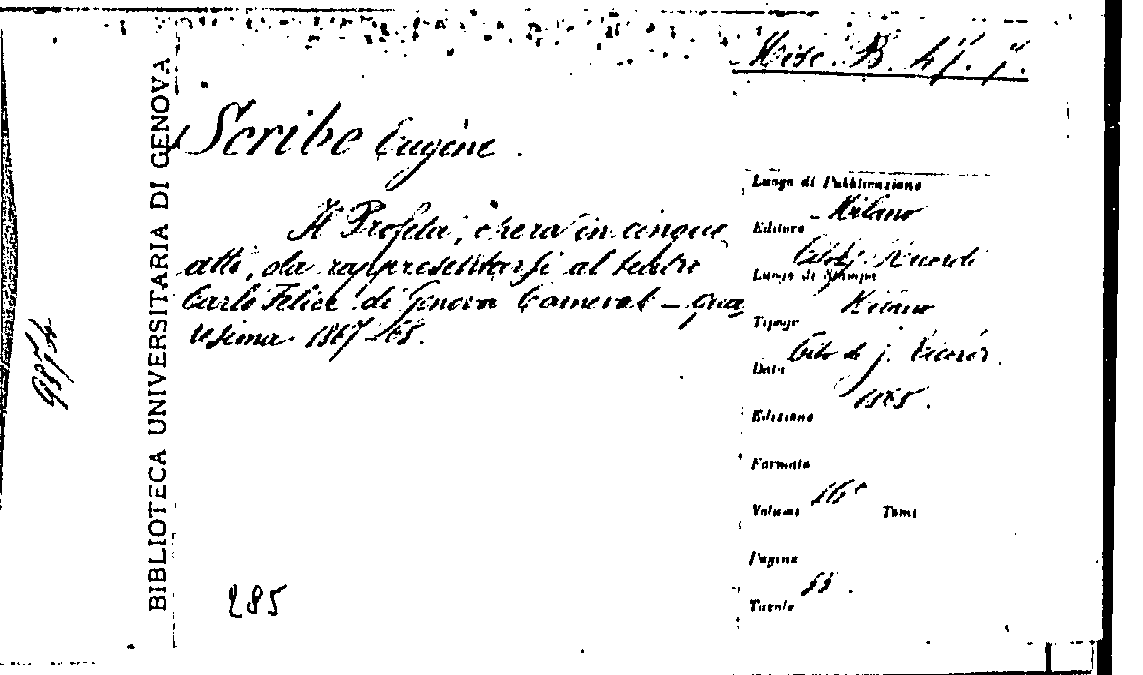 Misc. B. 47. 7.
BIBLIOTECA UNIVERSITARIA DI GENOVA
Scribe Eugène.
Il Profeta, opera in cinque
atti, da rappresentarsi al teatro
Carlo Felice di Genova Carneval - Qua
resima 1867-68.
Luogo di Pubblicazione
Milano
Editore
Ricordi
Luogo di Stampa
Milano
Tipogr.
di J. Ricordi.
Data
Edizione
Formato
16°
Volumi Tomi
Pagine
Tavole
285